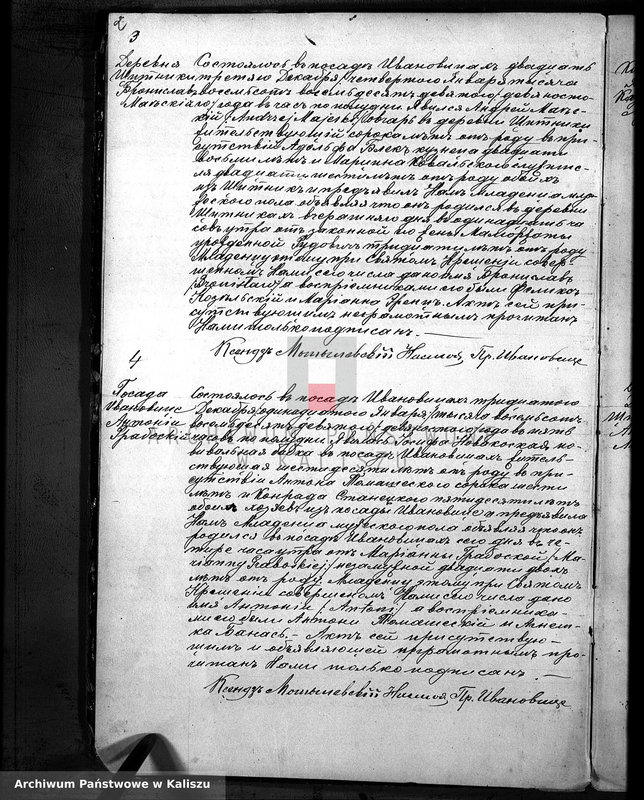 2
3
Деревня Состоялось въ посадѣ Ивановицахъ двадцать
Шитники третяго Декабря /четвертого Января/ тысяча
Брониславъ восемьсотъ восемьдесятъ девятого /девяносто-
Маевскій го/ года въ часъ по полудни. Явился Андрей Маев-
скій /Andrzej Majewski/ въ деревни Шитники
жительствующій сорока лѣтъ отъ роду въ при-
сутствіи Адольфа кузнеца двадцати
восьми лѣтъ и Марцина Ковальского
двадцати шести лѣтъ отъ роду обоихъ
изъ Шитникъ и предъявилъ Намъ младенца муж-
ескаго пола объявляя что онъ родился въ деревни
Шитникахъ вчерашняго дня въ одинадцать ча-
совъ утра отъ законной его жены Малгоржаты
урожденной тридцати лѣтъ отъ роду
Младенцу этому при Святомъ Крещеніи совер-
шенномъ Нами сего числа дано имя Брониславъ
/Bronisław/ а воспріемниками его были Феликсъ
Козельскій и Маріанна Френц. Актъ сей при-
сутствующимъ неграмотнымъ прочитанъ
Нами только подписанъ.
Ксендзъ Мотылевскій Пр. Ивановице
4
Посада Состоялось въ посадѣ Ивановицахъ тридцатого
Ивановице Декабря /одинадцатого Января/ тысяча восемьсотъ
Антоній восемьдесятъ девятого /девяностого/ года въ пять
Грабоскій часовъ по полудни. Явилась по-
вивальная бабка въ посадѣ Ивановицахъ житель-
ствующая шестидесяти лѣтъ отъ роду въ при-
сутствіи Антона Томашеского сорока шести
лѣтъ и Конрада Станецкого пятидесяти лѣтъ
обоихъ изъ посады Ивановице и предъявила
Намъ Младенца мужескаго пола объявляя что онъ
родился въ посадѣ Ивановицахъ сего дня въ че-
тыре часа утра отъ Маріанны Грабоской /Ma-
ryanny Graboskiej/ незамужной двадцати двохъ
лѣтъ отъ роду. Младенцу этому при Святомъ
Крещеніи совершеномъ Нами сего числа дано
имя Антоній /Antoni/ а воспріемника-
ми его были Антони Томашескій и Агнеш-
ка Банась. Актъ сей присутствую-
щимъ и объявляющей неграмотнымъ про-
читанъ Нами только подписанъ.
Ксендзъ Мотылевскій Пр. Ивановице
Archiwum Państwowe w Kaliszu